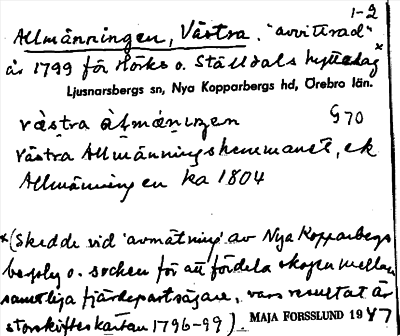 1-2
Allmänningen, Västra. "avvittrad"
år 1799 för Hörks o. Ställdals hyttelag*
Ljusnarsbergs sn, Nya Kopparbergs hd, Örebro län.
västra àlmäniŋen G70
Västra Allmänningshemmanet, ek
Allmänningen ka 1804
*(Skedde vid 'avmätning' av Nya Kopparbergs
bergslg o. socken för att fördela skogen mellan
samtliga fjärdepartsägare, vars resultat är
storskifteskartan 1796-99).
MAJA FORSSLUND 1947